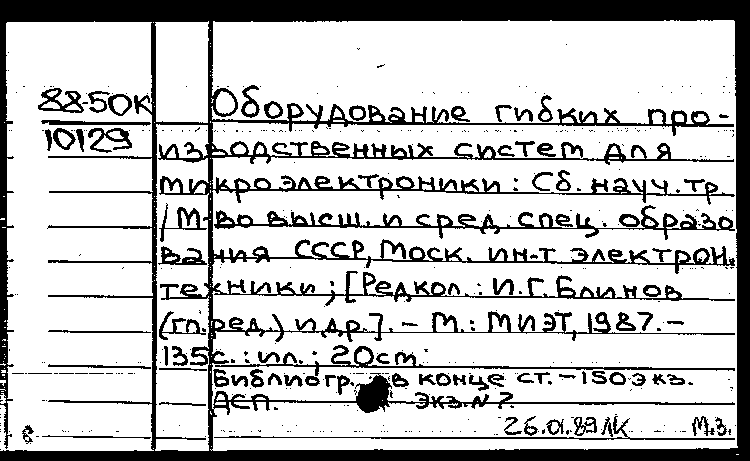 88-50К
10129
Оборудование гибких про-
изводственных систем для
микроэлектроники: Сб. науч. тр.
/ М-во высш. и сред. спец. образо
вания СССР, Моск. ин-т электрон.
техники; [Редкол.: И.Г. Блинов
(гл. ред.) и др.]. - М.: МИЭТ, 1987. -
135 с.: ил.; 20 см.
Библиогр. в конце ст. - 150 экз.
ДСП. экз. N 7.
26.01.89 ЛК М.З.